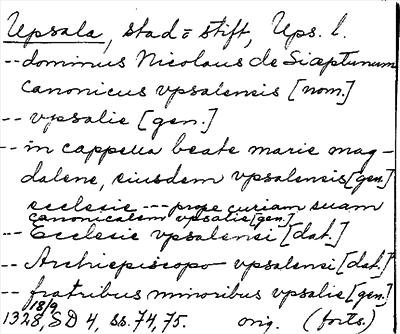 Upsala, stad = stift, Ups. l.
-- dominus Nicolaus de Siceptunum
canonicus vpsalensis [nom.]
-- vpsalie [gen.]
-- in cappella beate marie mag-
dalene, eiusdem vpsalensis [gen.]
ecclesie --- prope curiam suam
canonicalem vpsalie [gen.]
-- Ecclesie vpsalensi [dat.]
-- Archiepiscopo vpsalensi [dat.]
-- fratribus minoribus vpsalie [gen.]
18/9
1328, SD 4, ss. 74, 75. orig. (forts.)